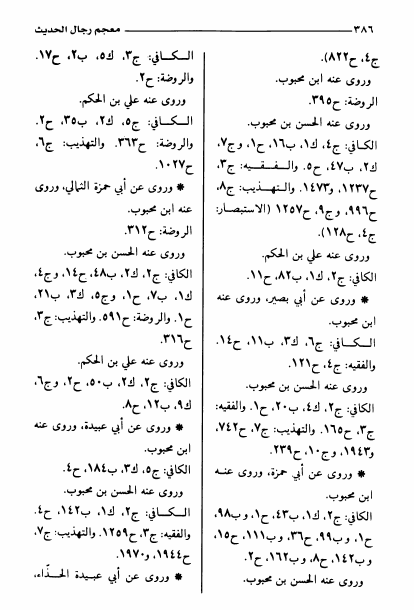 ٣٨٦ معجم رجال الحديث
ج٤، ح٨٢٢).
وروى عنه ابن محبوب.
الروضة: ح٣٩٥.
وروى عنه الحسن بن محبوب.
الكافي: ج٤، ك١، ب١٦، ح١، و ج٧،
ك٢، ب٤٧، ح٥. والـفـقـيه: ج٣،
ح١٢٣٧، و١٤٧٣. والتـهـذيب: ج٨،
ح٩٩٦، و ج٩، ح١٢٥٧ (الاستبصار:
ج٤، ح١٢٨).
وروى عنه علي بن الحكم.
الكافي: ج٢، ك١، ب٨٢، ح١١.
* وروى عن أبي بصير، وروى عنه
ابن محبوب.
الـكـافي: ج٦، ك٣، ب١١، ح١٤.
والفقيه: ج٤، ح١٢١.
وروى عنه الحسن بن محبوب.
الكافي: ج٢، ك٤، ب٢٠، ح١. والفقيه:
ج٣، ح١٦٥. والتهذيب: ج٧، ح٧٤٢،
و١٩٤٣، و ج١٠، ح٢٣٩.
* وروى عن أبي حمزة، وروى عنـه
ابن محبوب.
الكافي: ج٢، ك١، ب٤٣، ح١، و ب٩٨،
ح١، و ب٩٩، ح٣٦، و ب١١١، ح١٥،
و ب١٤٢، ح٨، و ب١٦٢، ح٢.
وروى عنه الحسن بن محبوب.
الـكـافي: ج٣، ك٥، ب٢، ح١٧.
والروضة: ح٢.
وروى عنه علي بن الحكم.
الـكـافي: ج٥، ك٢، ب٣٥، ح٢.
والروضة: ح٣٦٣. والتهذيب: ج٦،
ح١٠٢٧.
* وروى عن أبي حمزة الثمالي، وروى
عنه ابن محبوب.
الروضة: ح٣١٢.
وروى عنه الحسن بن محبوب.
الكافي: ج٢، ك٢، ب٤٨، ح١٤، و ج٤،
ك١، ب٧، ح١، و ج٥، ك٣، ب٢١،
ح١. والروضة: ح٥٩١. والتهذيب: ج٣،
ح٣١٦.
وروى عنه علي بن الحكم.
الكافي: ج٢، ك٢، ب٥٠، ح٢، و ج٦،
ك٩، ب١٢، ح٨.
* وروى عن أبي عبيدة، وروى عنه
ابن محبوب.
الكافي: ج٥، ك٣، ب١٨٤، ح٤.
وروى عنه الحسن بن محبوب.
الـكـافي: ج٢، ك١، ب١٤٢، ح٤.
والفقيه: ج٣، ح١٢٥٩. والتهذيب: ج٧،
ح١٩٤٤، و١٩٧٠.
* وروى عن أبي عبيدة الحذّاء،